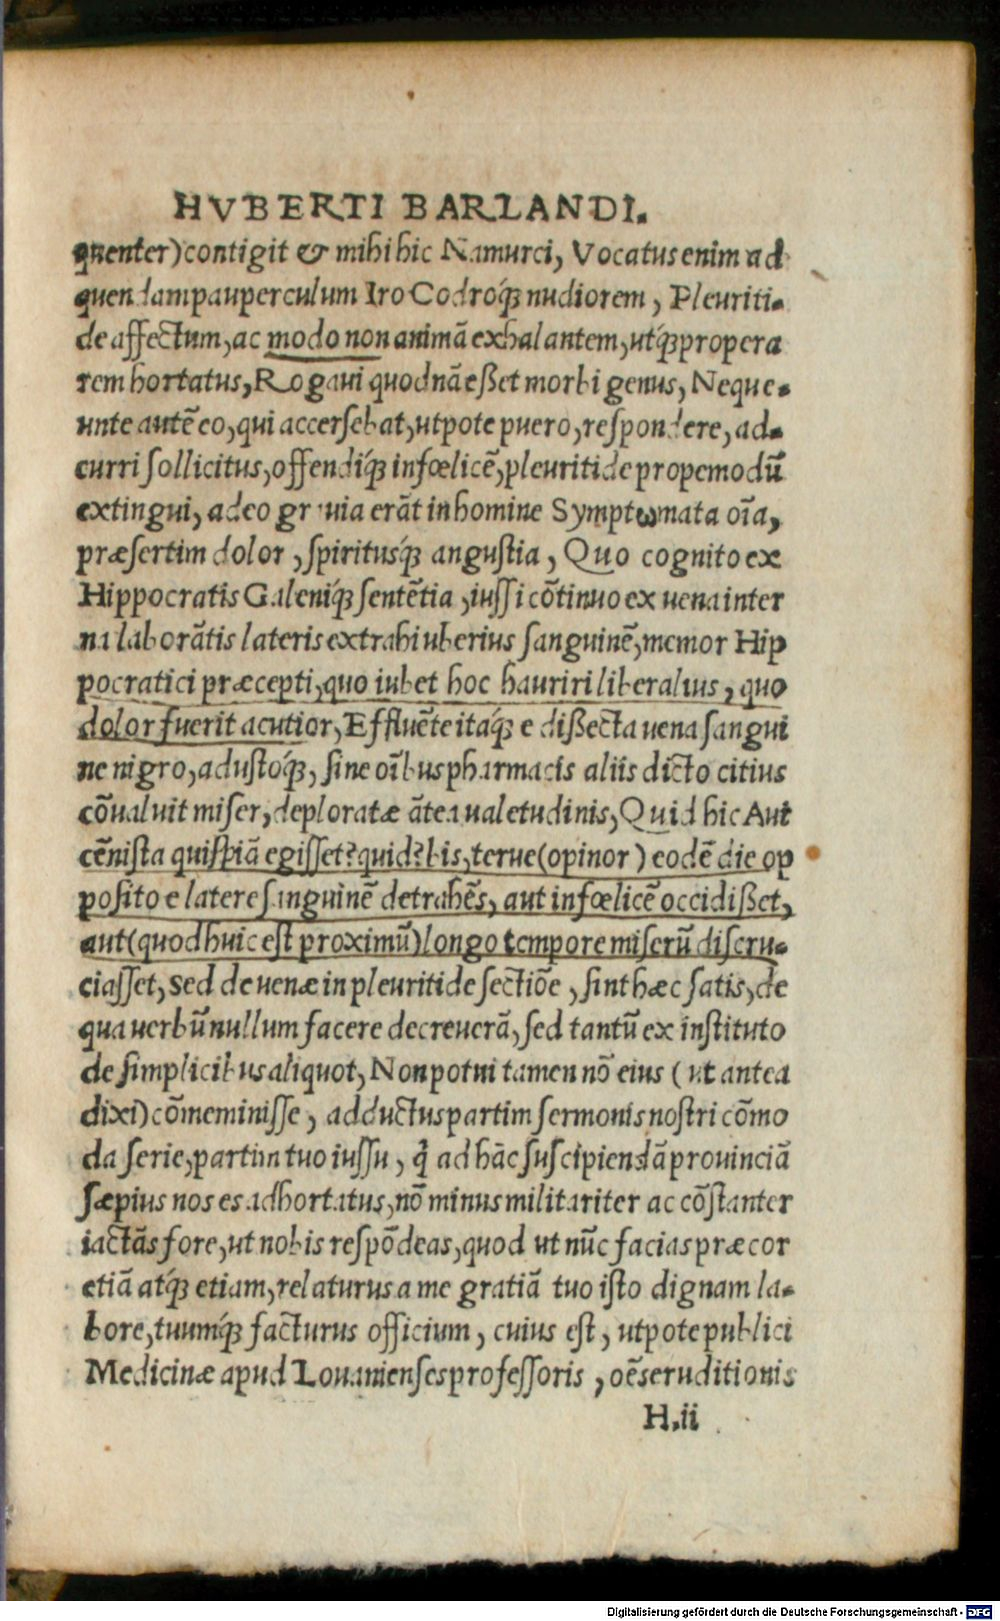 HVBERTI BARLANDI.
quenter) contigit & mihi hic Namurci, Vocatus enim ad
quendam pauperculum Iro Codroq́ꝫ nudiorem, Pleuriti-
de affectum, ac modo non animā exhalantem, utq́ꝫ propera
rem hortatus, Rogaui quodnā eßet morbi genus, Neque-
unte autē eo, qui accersebat, utpote puero, respondere, ad-
curri sollicitus, offendiq́ꝫ infœlicē, pleuritide propemodū
extingui, adeo grauia erāt in homine Symptωmata oīa,
præsertim dolor, spiritusq́ꝫ angustia, Quo cognito ex
Hippocratis Galeniq́ꝫ sentētia, iussi cōtinuo ex uena inter
na laborātis lateris extrahi uberius sanguinē, memor Hip
pocratici præcepti, quo iubet hoc hauriri liberalius, quo
dolor fuerit acutior, Effluēte itaq́ꝫ e dißecta uena sangui
ne nigro, adustoq́ꝫ, sine oībus pharmacis aliis dicto citius
cōualuit miser, deploratæ ātea ualetudinis, Quid hic Aui
cēnista quispiā egisset? quid? bis, terue (opinor) eodē die op
posito e latere sanguinē detrahēs, aut infœlicē occidißet,
aut (quod huic est proximū) longo tempore miserū discru-
ciasset, Sed de uenæ in pleuritide sectiōe, sint hæc satis, de
qua uerbū nullum facere decreuerā, sed tantū ex instituto
de simplicibus aliquot, Non potui tamen nō eius (ut antea
dixi) cōmeminisse, adductus partim sermonis nostri cōmo
da serie, partim tuo iussu, q̄ ad hāc suscipiendā prouinciā
sæpius nos es adhortatus, nō minus militariter ac cōstanter
iactās fore, ut nobis respōdeas, quod ut nūc facias præcor
etiā atq́ꝫ etiam, relaturus a me gratiā tuo isto dignam la-
bore, tuumq́ꝫ facturus officium, cuius est, utpote publici
Medicinæ apud Louanienses professoris, oēs eruditionis
H.ii
Digitalisierung gefördert durch die Deutsche Forschungsgemeinschaft - DFG